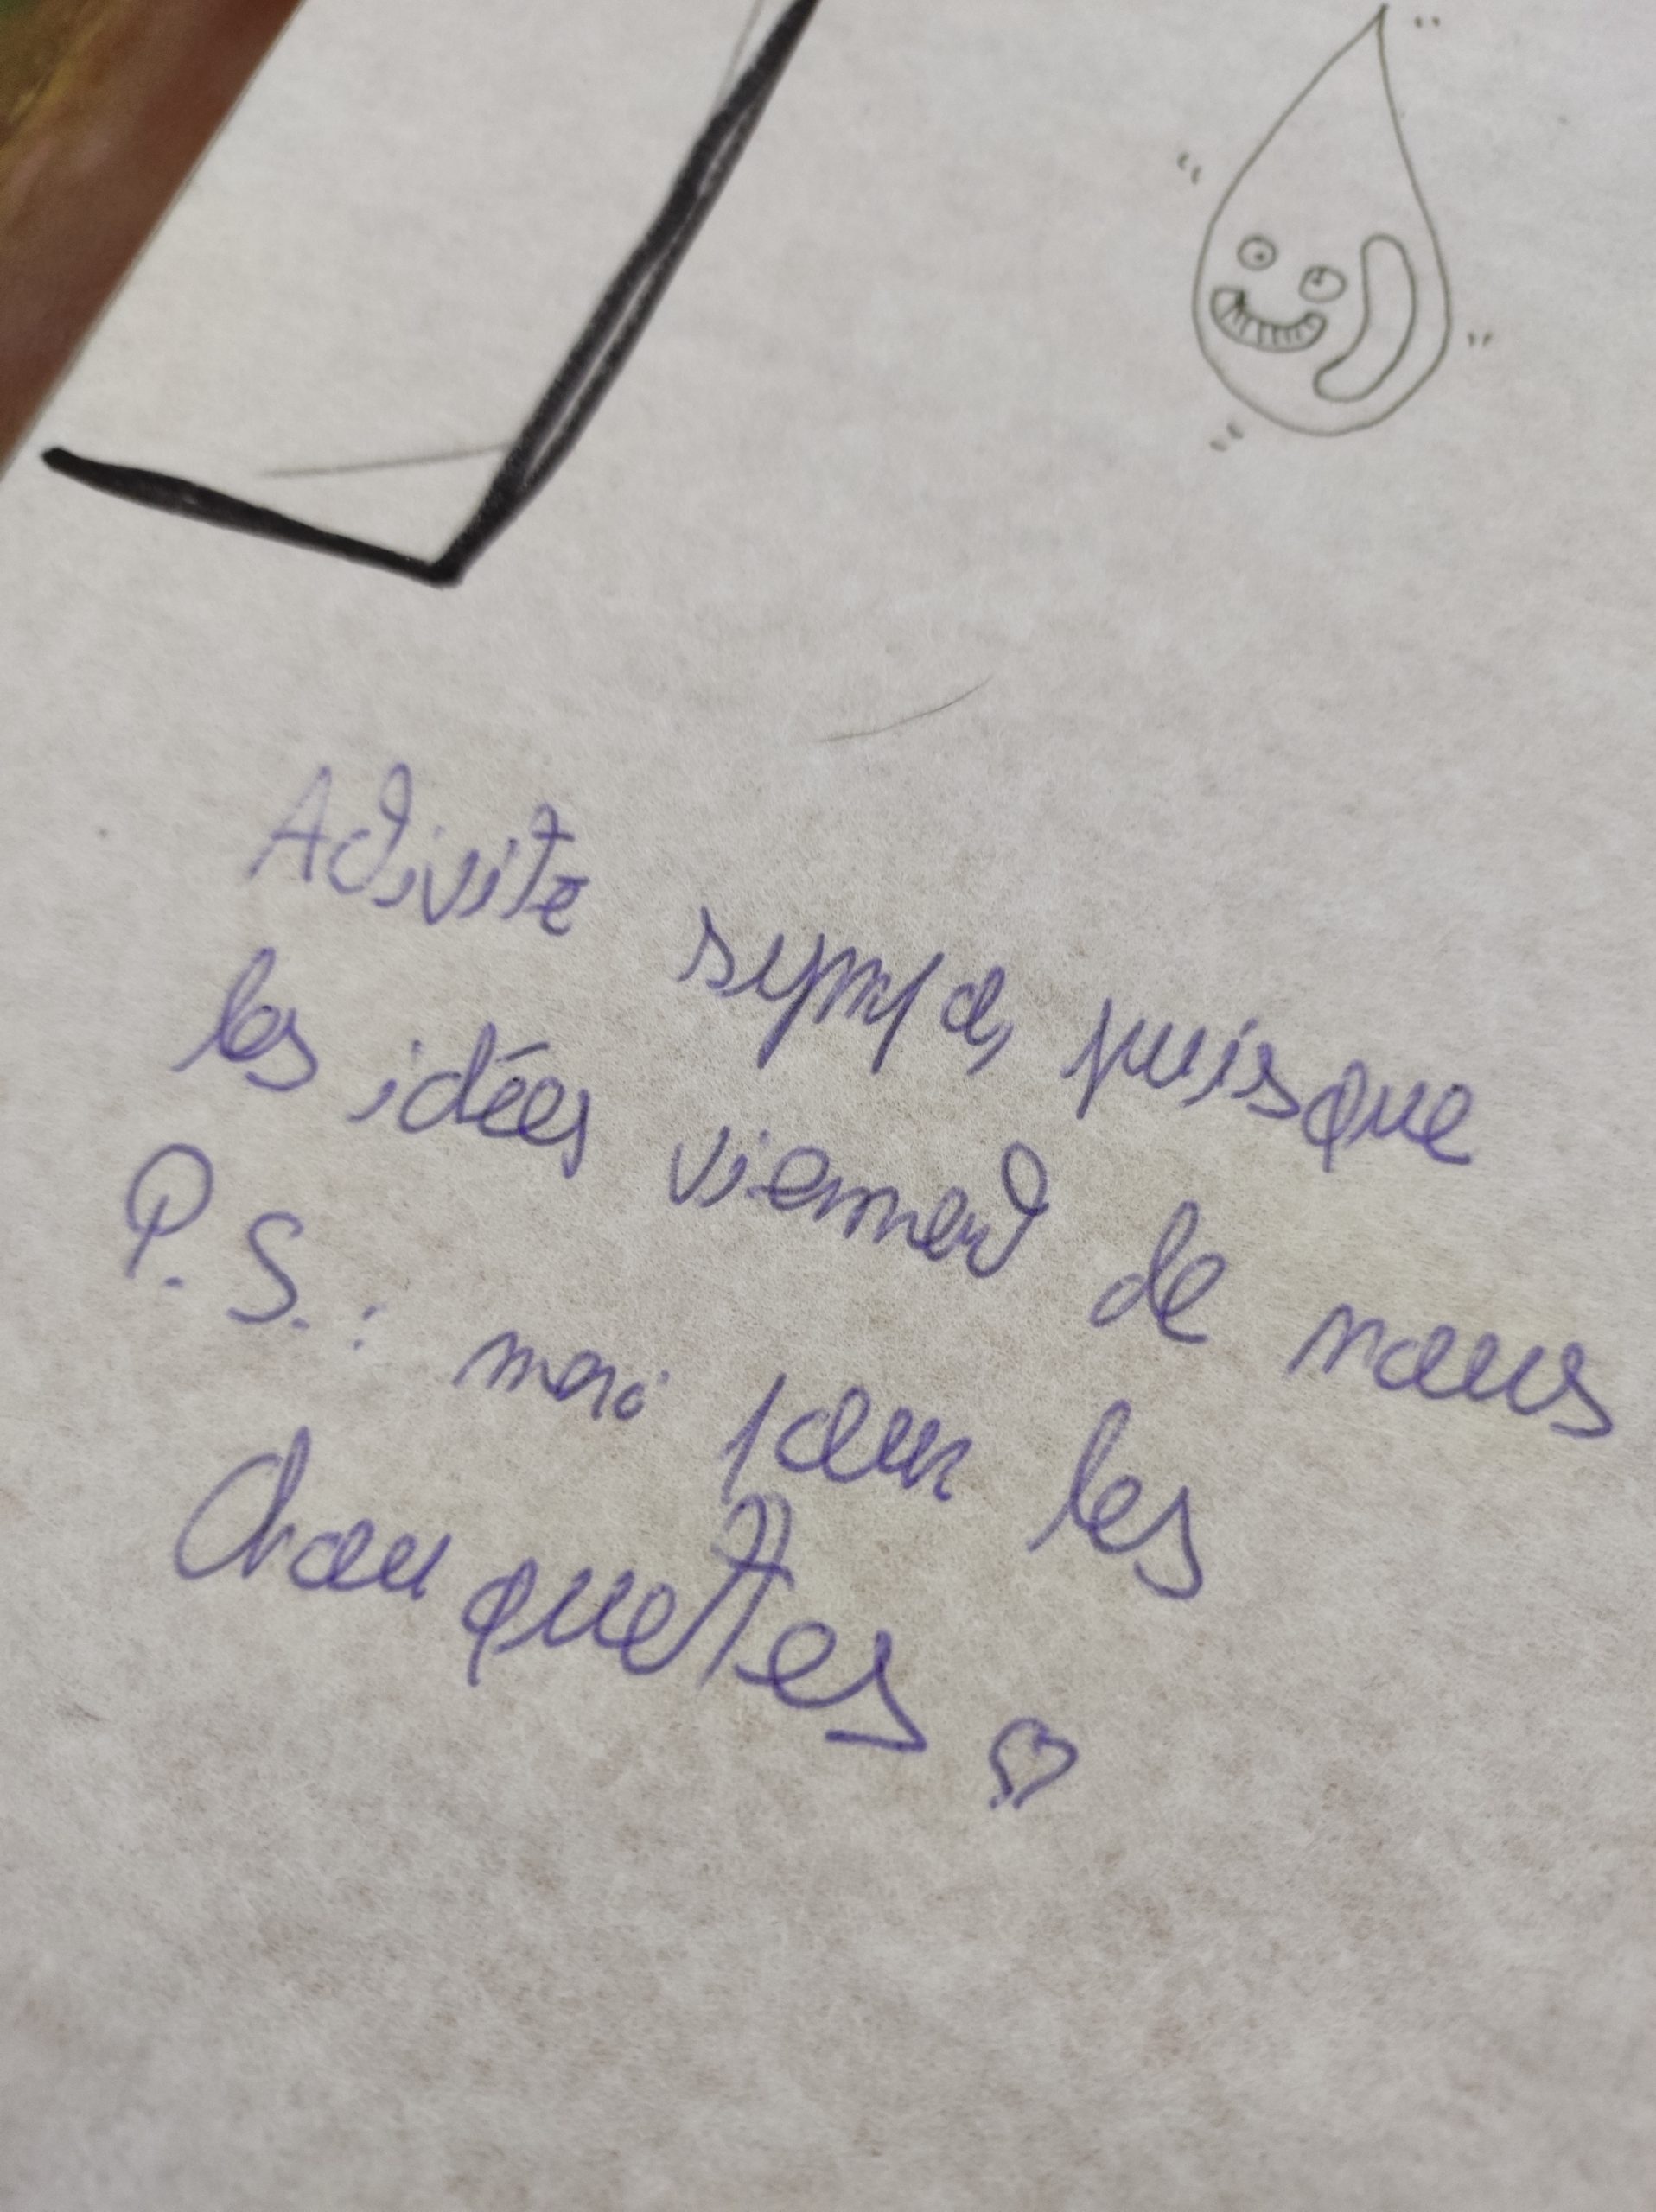 Activité sympa, puisque
les idées viennent de nous
P.S. : merci pour les
Chouquettes